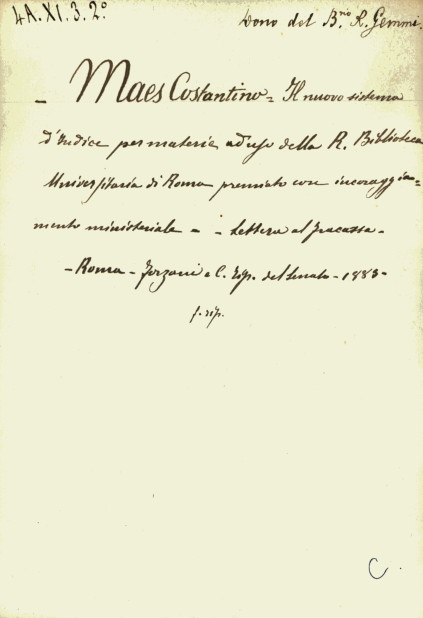 4A.XI.3.2º
Dono del B.rio R. Gemmi.
- Maes Costantino = Il nuovo sistema
d'Indice per materie ad uso della R. Biblioteca
Universitaria di Roma premiato con incoraggia-
mento ministeriale - - Lettera al Fracassa -
- Roma - Forzani e C. Tip. del Senato - 1883 -
C.